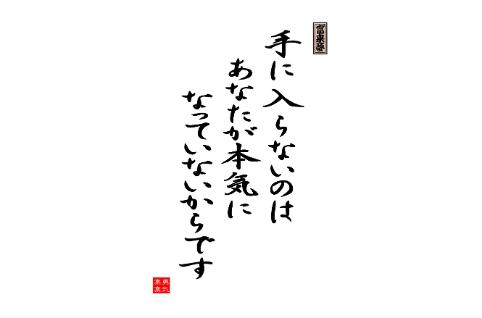 手に入らないのは
あなたが本気に
なっていないからです